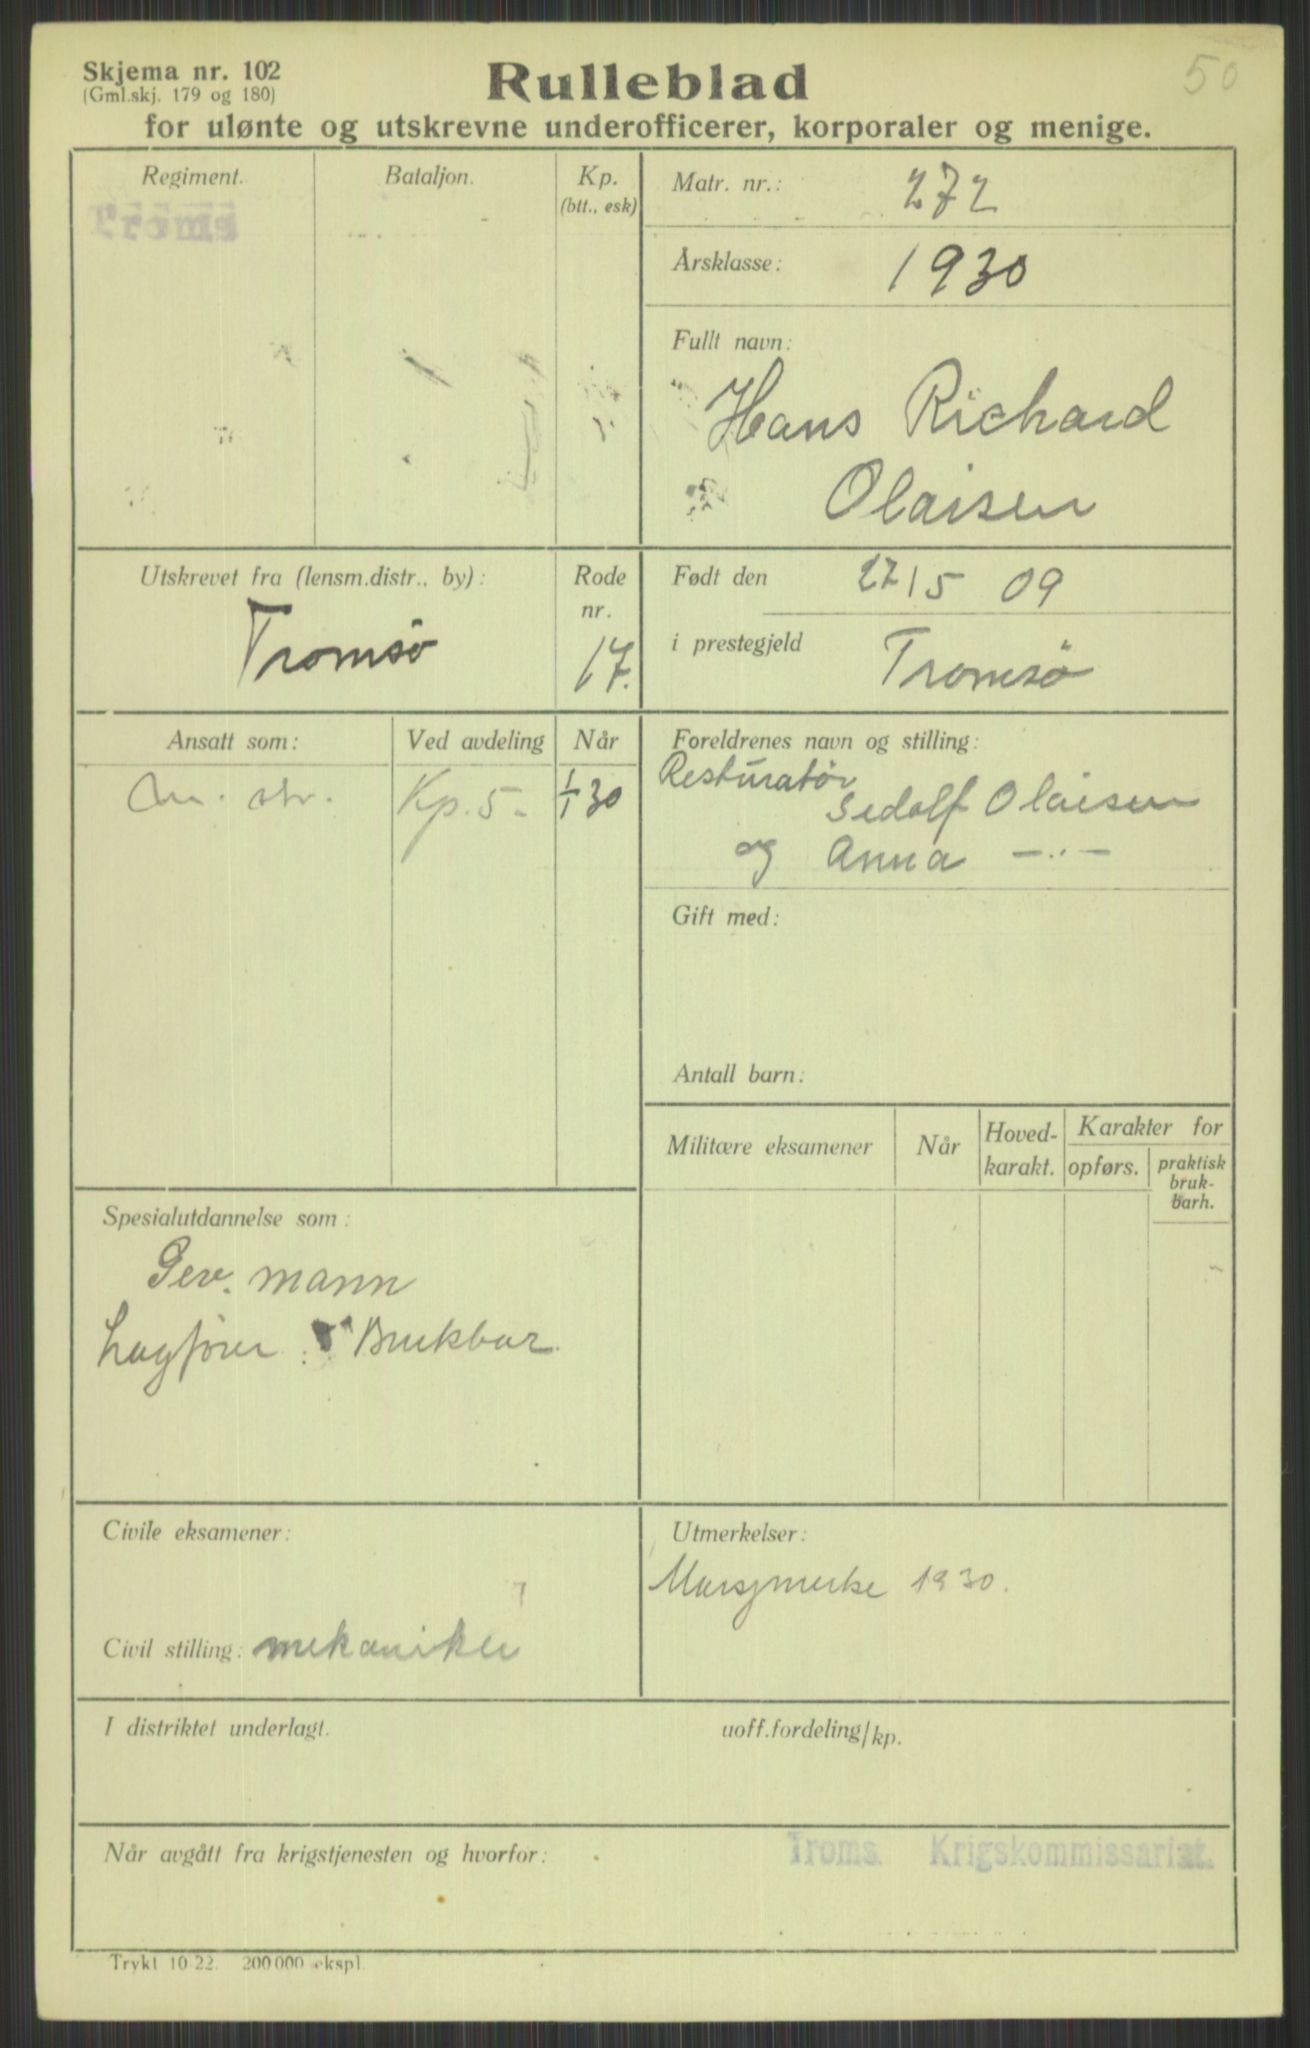 50
Skjema nr. 102
(Gml.skj. 179 og 180)
Rulleblad
for ulønte og utskrevne underofficerer, korporaler og menige.
Regiment.
Troms
Bataljon.
Kp.
(btt., esk)
Matr. nr.: 272
Årsklasse: 1930
Fullt navn:
Hans Richard
Olaisen
Utskrevet fra (lensm.distr., by):
Tromsö
Rode
nr.
17.
Født den 27/5 09
i prestegjeld Tromsö
Ansatt som:
Ved avdeling
Når
str.
Kp. 5.
1/1 30
Foreldrenes navn og stilling:
Resturatör
Sedolf Olaisen
og Anna —„—
Gift med:
Antall barn:
Militære eksamener
Når
Hoved-
karakt.
Karakter for
opførs.
praktisk
bruk-
barh.
Spesialutdannelse som:
Gev. mann
Lagfører : Brukbar.
Civile eksamener:
Civil stilling: mekaniker
Utmerkelser:
Marsjmerke 1930.
I distriktet underlagt.
uoff.fordeling/kp.
Når avgått fra krigstjenesten og hvorfor:
Troms Krigskommissariat.
Trykt 10-22. 200 000 ekspl.